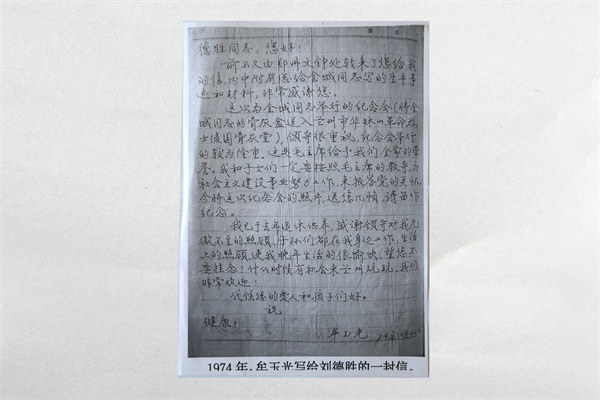 德胜同志，您好！
前不久由郑州文钟处转来了您给我
的信，内中附有您给金城同志写的生平事
迹和材料，非常感谢您。
这次为金城同志举行的纪念会（将金
城同志的骨灰盒送入兰州市华林山革命烈
士陵园骨灰堂），领导很重视，纪念会举行
的较为隆重。这是毛主席给予我们全家的荣
誉。我和子女们一定要按照毛主席的教导，为
社会主义建设事业努力工作，来报答党的关怀
今将这次纪念会的照片，送您几帧，请留作
纪念。
我已于去年退休供养，感谢领导对我无
微不至的照顾，子女们都在我身边工作，生活
上的照顾，使我晚年生活的很愉快，望您不
要挂念！什么时候有机会来兰州玩玩，我们
非常欢迎！
代候您的爱人和孩子们好。
祝
健康！
牟玉光
1974年，牟玉光写给刘德胜的一封信。